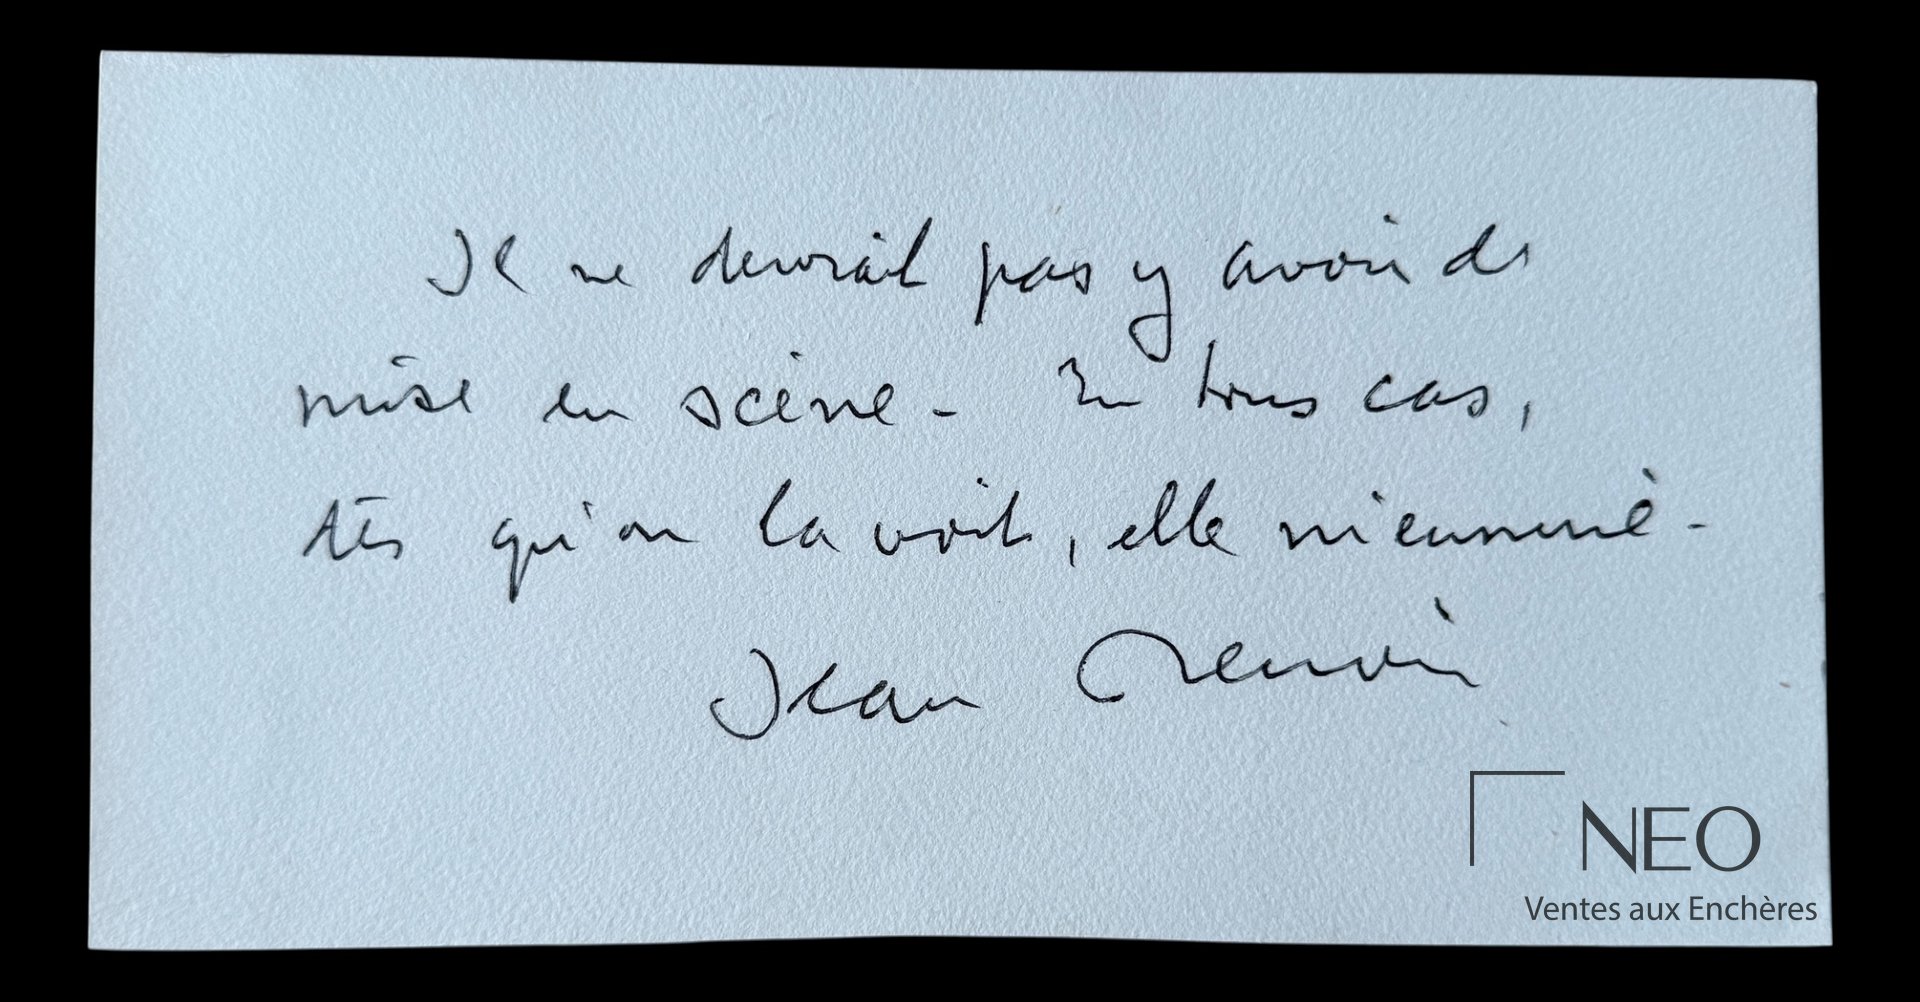 Il ne devrait pas y avoir de
mise en scène - En tous cas,
dès qu'on la voit, elle m'ennuie -
Jean Renoir
NEO
Ventes aux Enchères